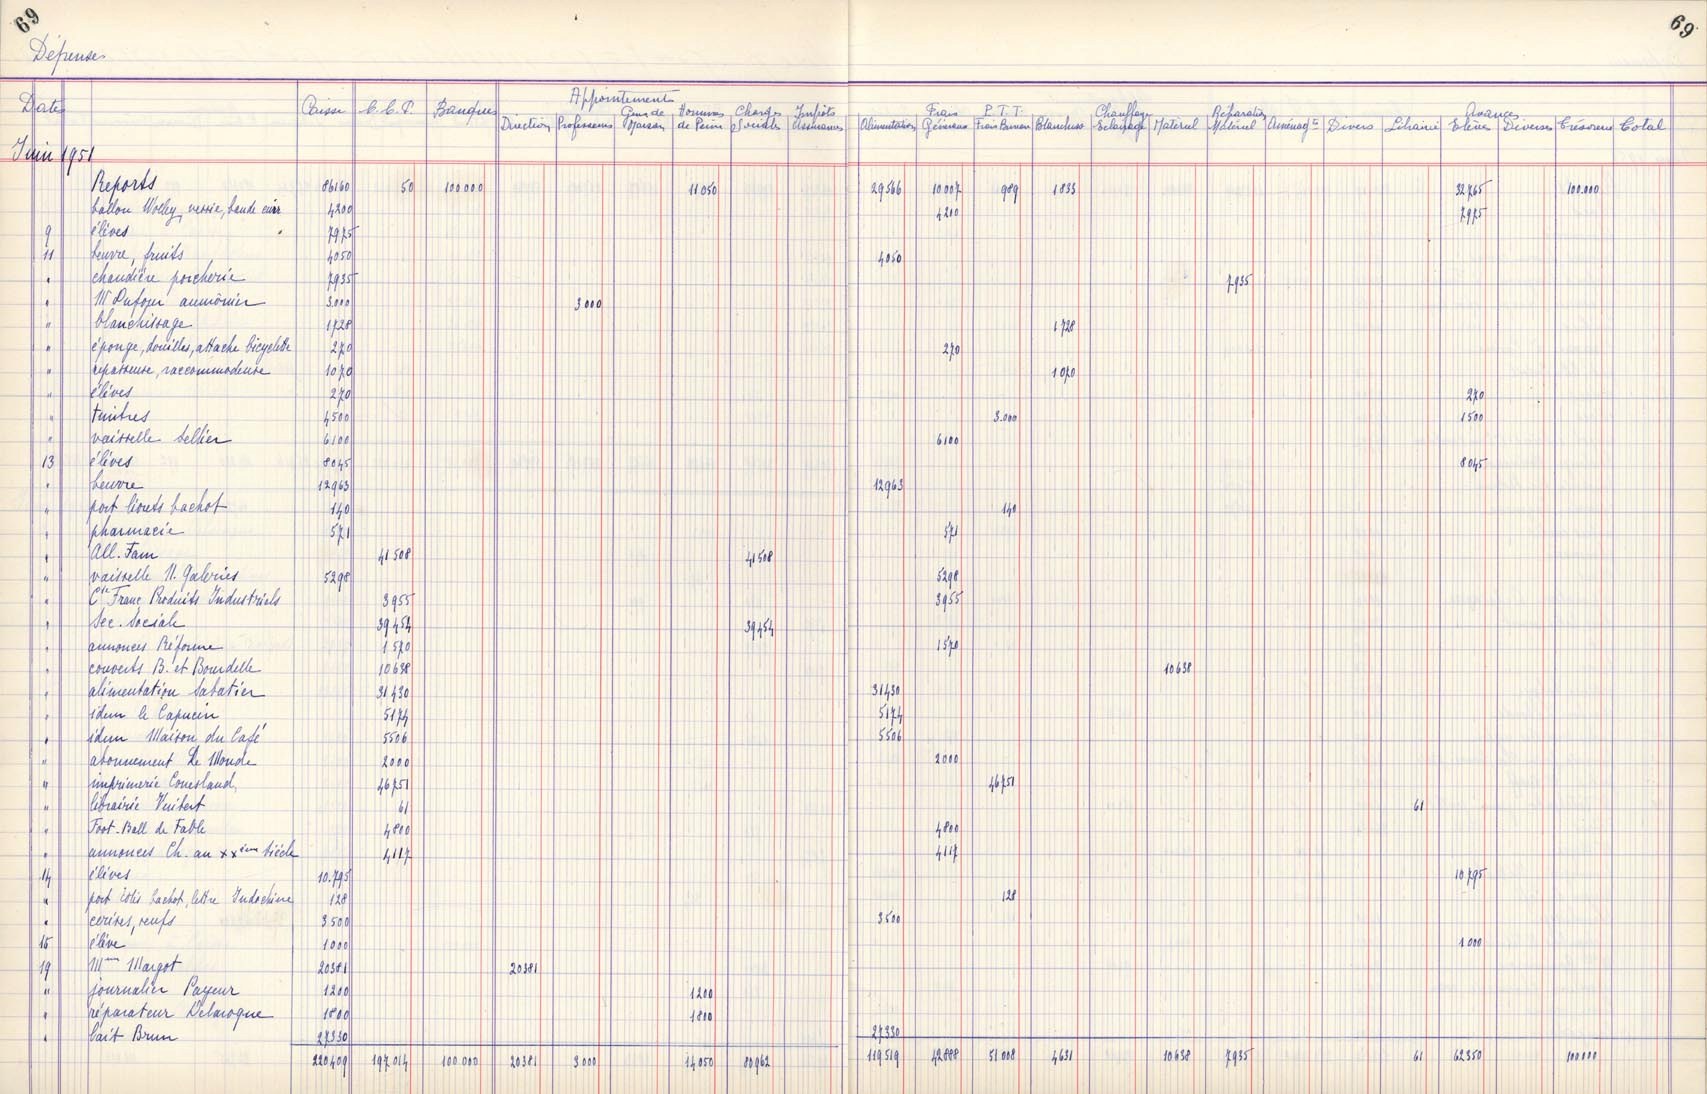 69 69
Dépenses
Dates Caisse C.C.P. Banques Appointements Direction Professeurs Gens de Maison Hommes de Peine Charges Sociales Impôts Assurances Alimentation Frais Généraux P.T.T. Frais Bureau Blanchiss Chauffage Eclairage Matériel Réparation Matériel Aménagts Divers Librairie Avances Elèves Diverses Trésorerie Total
Juin 1951
Reports 86160 50 100 000 11 050 29566 10 007 989 1833 32765 100.000
ballon Wolley, vessie, bande cuir 4200 4210 7975
9 élèves 7975
11 beurre, fruits 4050 4050
" chaudière porcherie 7935 7935
" Mr Dufour aumônier 3.000 3 000
" blanchissage 1728 1728
" éponge, douilles, attache bicyclette 270 270
" repasseuse, raccommodeuse 1070 1070
" élèves 270 270
" timbres 4500 3.000 1500
" vaisselle Sellier 6100 6100
13 élèves 8045 8045
" beurre 12963 12963
" port livrets bachot 140 140
" pharmacie 571 571
" All. Fam 41 508 41508
" vaisselle N. Galeries 5298 5298
" Cie Franç Produits Industriels 3955 3955
" Sec. Sociale 39454 39454
" annonces Réforme 1570 1570
" couverts B. et Bourdelle 10638 10638
" alimentation Sabatier 31430 31430
" idem le Capucin 5174 5174
" idem Maison du Café 5506 5506
" abonnement Le Monde 2000 2000
" imprimerie Coueslant 46751 46751
" librairie Vuibert 61 61
" Foot-Ball de Table 4800 4800
" annonces Ch. au XXième Siècle 4117 4117
14 élèves 10.795 10795
" port bachot, lettre Indochine 128 128
" cerises, oeufs 3500 3500
15 élève 1000 1 000
19 Mme Margot 20381 20381
" journalier Payeur 1200 1200
" réparateur Delarogue 1800 1800
" lait Brun 27330 27330
220409 197014 100 000 20381 3 000 14050 80962 119519 42888 51008 4631 10638 7935 61 62350 100000